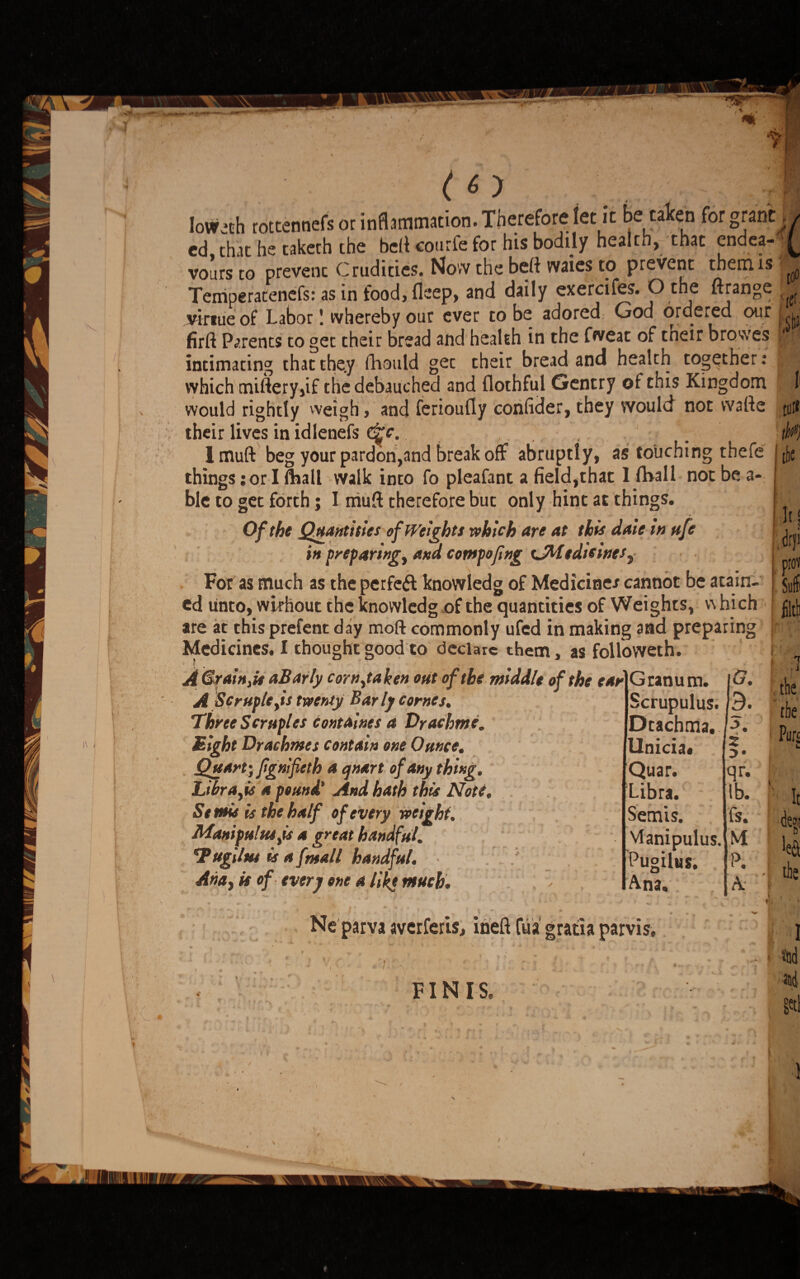 ( 6 )
loweth rottennefs or inflammation. Therefore let it be taken for grant
ed, that he taketh the beſt courſe for his bodily health, that endea-
vours to prevent Crudities. Now the beſt waies to prevent them is
Temperatenefs: as in food, ſleep, and daily exerciſes. O the ſtrange
virtue of Labor! whereby our ever to be adored God ordered our
firſt Parents to get their bread and health in the ſweat of their browes
intimating that they ſhould get their bread and health together:
which miſtery,if the debauched and ſlothful Gentry of this Kingdom
would rightly weigh, and ſeriouſly conſider, they would not waſte
their lives in idleneſs &c.
I muſt beg your pardon,and break off abruptly, as touching theſe
things: or I ſhall walk into ſo pleaſant a field,that I ſhall not be a-
ble to get forth; I muſt therefore but only hint at things.
Of the Quantities of Weights which are at this daie in uſe
in preparing, and compoſing Medicines,
For as much as the perfect knowledg of Medicines cannot be atain-
ed unto, without the knowledg of the quantities of Weights, which
are at this preſent day moſt commonly uſed in making and preparing
Medicines. I thought good to declare them, as followeth.
A Grain,is a Barly corn,taken out of the middle of the ear Granum. G.
A Scruple,is twenty Barly cornes. Scrupulus. ℈.
Three Scruples containes a Drachme. Drachma. ʒ.
Eight Drachmes contain one Ounce. Unicia. ℥.
Quart; ſignifieth a quart of any thing. Quar. qr.
Libra,is a pound And hath this Note. Libra. lb.
Semis is the half of every weight. Semis. ſs.
Manipulus,is a great handful. Manipulus. M
Pugilus is a ſmall handful. Pugilus. P.
Ana, is of every one a like much. Ana. A
Ne parva averſeris, ineſt ſua gratia parvis.
FINIS.